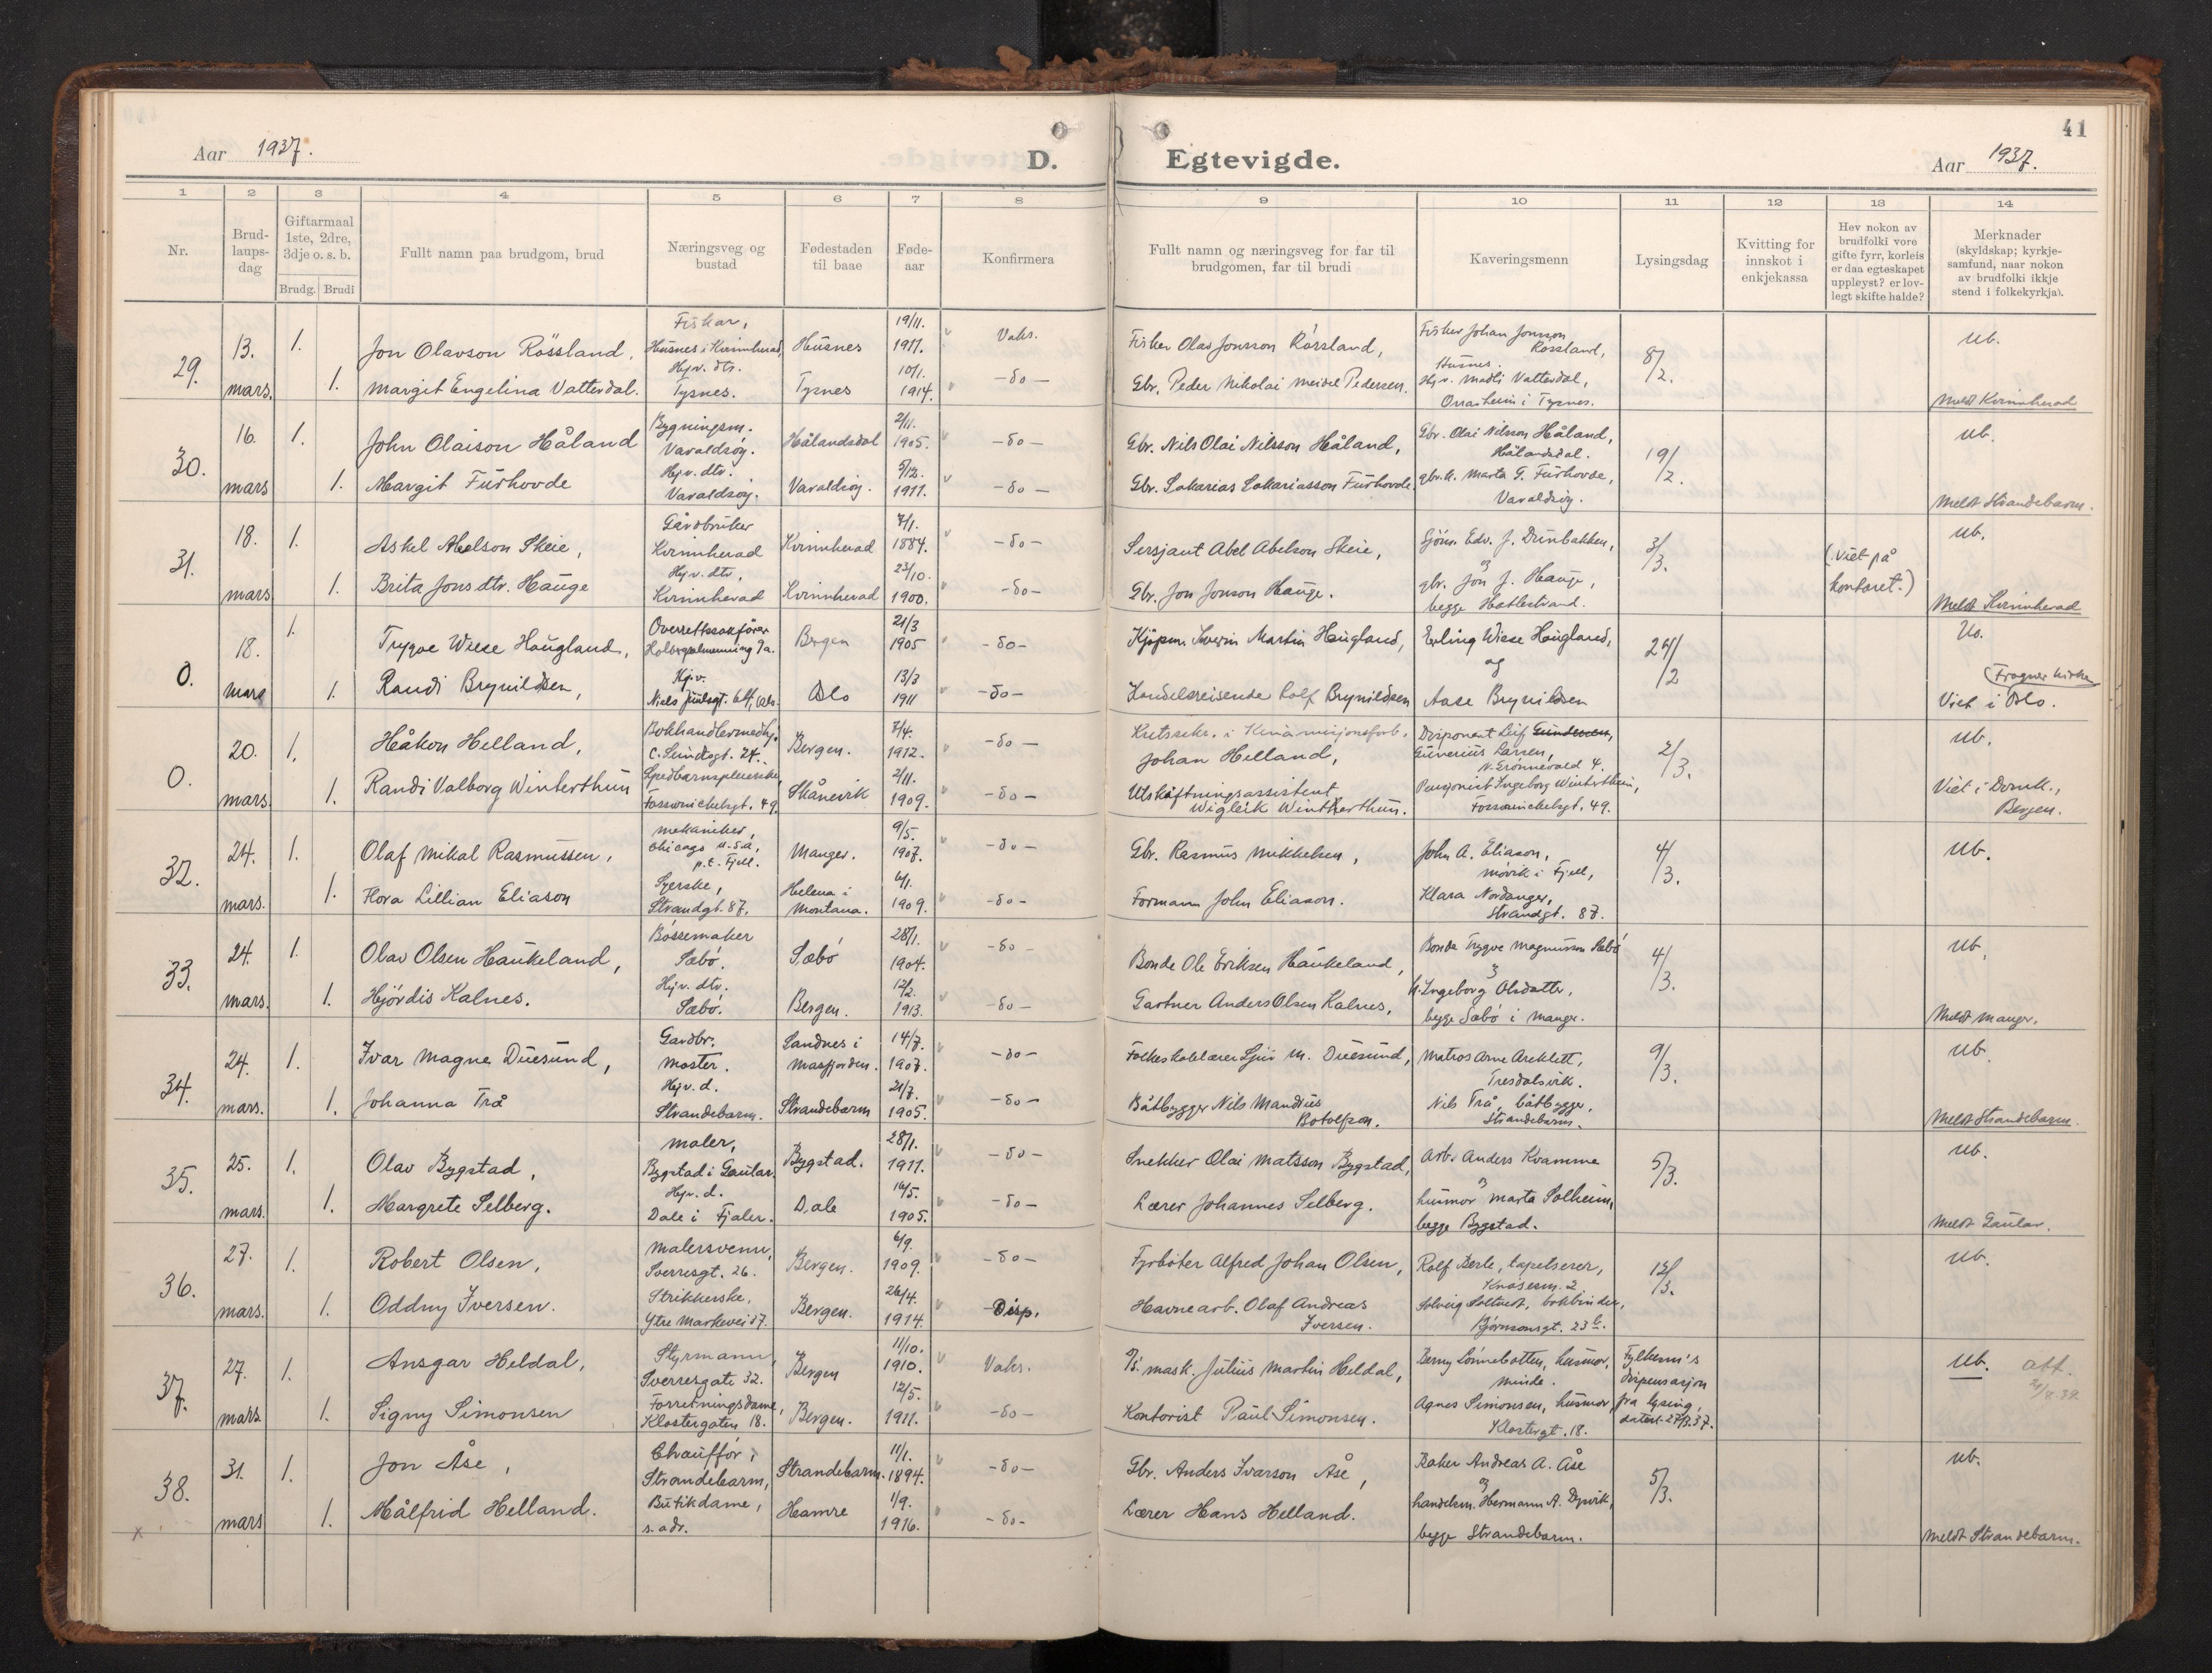 41
Aar 1937.
D. Egtevigde.
Aar 1937.
1 2 3 4 5 6 7 8 9 10 11 12 13 14
Nr.
Brud-
laups-
dag
Giftarmaal
1ste, 2dre,
3dje o. s. b.
Brudg. Brudi
Fullt namn paa brudgom, brud
Næringsveg og
bustad
Fødestaden
til baae
Føde-
aar
Konfirmera
Fullt namn og næringsveg for far til
brudgomen, far til brudi
Kaveringsmenn
Lysingsdag
Kvitting for
innskot i
enkjekassa
Hev nokon av
brudfolki vore
gifte fyrr, korleis
er daa egteskapet
uppløyst? er lov-
legt skifte halde?
Merknader
(skyldskap; kyrkje-
samfund, naar nokon
av brudfolki ikkje
stend i folkekyrkja).
29.
13. mars.
1.
Jon Olavson Røssland,
Fiskar,
Husnes i Kvinnherad,
Husnes
19/11. 1911.
Vaks.
Fisker Olav Jonsson Røssland,
Fisker Johan Jonsson
Røssland,
Husnes.
8/2.
ub.
1.
Margit Engelina Vatterdal.
Hjv. dtr.
Tysnes.
Tysnes
10/1. 1914.
-do-
Gbr. Peder Nikolai Meidel Pedersen.
Hjv. Madli Vatterdal,
i Tysnes.
Meldt Kvinnherad
30.
16. mars
1.
John Olaison Håland
Bygningsm.
Varaldsøy.
Hålandsdal
2/11. 1905.
-do-
Gbr. Nils Olai Nilsson Håland,
Gbr. Olai Nilsson Håland,
Hålandsdal.
19/2.
ub.
1.
Margit Furhovde
Hjv. dtr.
Varaldsøy.
Varaldsøy.
5/12. 1911.
-do-
Gbr. Sakarias Sakariasson Furhovde
gbr.k. Marta G. Furhovde,
Varaldsøy.
Meldt Strandebarm.
31.
18. mars
1.
Askel Abelson Skeie,
Gårdbruker
Kvinnherad
Kvinnherad
7/1. 1884.
-do-
Sersjant Abel Abelson Skeie,
Sjöm. Edv. J. Dunbakken,
og
3/3.
(Viet på
kontoret.)
ub.
1.
Brita Jonsdtr. Hauge
Hjv. dtr,
Kvinnherad
Kvinnherad
23/10. 1900.
-do-
Gbr. Jon Jonson Hauge.
gbr. Jon J. Hauge,
begge Hatlestrand.
Meldt Kvinnherad
0.
18. mars
1.
Trygve Wiese Haugland,
Overrettssakförer
Holbergsalmenning 9a.
Bergen
21/3 1905
-do-
Kjöpm. Severin Martin Haugland,
Erling Wiese Haugland,
og
24/2
Ub.
1.
Randi Brynildsen,
Hjv.
Niels Juelsgt. 64, Oslo.
Oslo
13/3 1911
-do-
Handelsreisende Rolf Brynildsen
Aase Brynildsen
(Frogner kirke
Viet i Oslo.
0.
20. mars.
1.
Håkon Helland,
Bokhandlermedhj.
C. Sundtsgt. 24.
Bergen.
7/4. 1912.
-do-
Kretssekr. i Kinamisjonsforb.
Johan Helland,
Disponent Leif Gundersen,
Gunerius Larsen,
N. Grønnevold 4.
2/3.
ub.
1.
Randi Valborg Winterthun
Spedbarnspleierske,
Fosswinckelsgt. 49.
Skånevik
2/11. 1909.
-do-
Utskiftningsassistent
Wigleik Winterthun.
Pensjonist Ingeborg Winterthun,
Fosswinckelsgt. 49.
Viet i Domk.,
Bergen.
32.
24. mars.
1.
Olaf Mikal Rasmussen,
mekaniker,
Chicago U.S.A,
p.t. Fjell.
Manger.
9/5. 1907.
-do-
Gbr. Rasmus Mikkelsen,
John A. Eliason,
Morvik i Fjell,
4/3.
ub.
1.
Flora Lillian Eliason
Syerske,
Strandgt. 87.
Helena i
Montana.
6/1. 1909.
-do-
Formann John Eliason.
Klara Nordanger,
Strandgt. 87.
33.
24. mars.
1.
Olav Olsen Haukeland,
Børsemaker
Sæbø.
Sæbø
28/1. 1904.
-do-
Bonde Ole Eriksen Haukeland,
Bonde Trygve Magnusson Sæbø
og
4/3.
ub.
1.
Hjørdis Kalnes.
Hjv. dtr.
Sæbø.
Bergen.
12/2. 1913.
-do-
Gartner Anders Olsen Kalnes,
Ingeborg Olsdatter,
begge Sæbø i Manger.
Meldt Manger.
34.
24. mars.
1.
Ivar Magne Duesund,
Gardbr.
Moster.
Sandnes i
Masfjorden.
14/7. 1907.
-do-
Folkeskolelærer Sjur M. Duesund,
Matros Arne Areklett,
Tresdalsvik.
9/3.
ub.
1.
Johanna Trå
Hjv. d.
Strandebarm.
Strandebarm
21/7. 1905.
-do-
Båtbygger Nils Mandius
Botolfsen.
Nils Trå, båtbygge,
Strandebarm.
Meldt Strandebarm.
35.
25. mars.
1.
Olav Bygstad,
maler,
Bygstad i Gaular.
Bygstad.
28/1. 1911.
-do-
Snekker Olai Matsson Bygstad,
Arb. Anders Kvamme
og
5/3.
ub.
1.
Margrete Selberg.
Hjv. d.
Dale i Fjaler.
Dale
16/5. 1905.
-do-
Lærer Johannes Selberg.
husmor Marta Solheim,
begge Bygstad.
Meldt Gaular.
36.
27. mars.
1.
Robert Olsen,
Malersvenn,
Sverresgt. 26.
Bergen.
6/9. 1909.
-do-
Fyrbøter Alfred Johan Olsen,
Rolf Berle, tapetserer,
Knøsesm. 2.
12/3.
ub.
1.
Oddny Iversen.
Strikkerske,
Ytre Markevei 37.
Bergen.
26/4. 1914.
Disp.
Havnearb. Olaf Andreas
Iversen.
Solveig Soltvedt, bokbinder,
Bjørnsonsgt. 23 b.
37.
27. mars
1.
Ansgar Heldal,
Styrmann,
Sverresgate 32.
Bergen
11/10. 1910.
Vaks.
mask. Julius Martin Heldal,
Berny Lønnebotten, husmor,
Minde.
Fylkesm's
dispensasjon
fra lysing,
datert 27/3.37.
ub. att.
1.
Signy Simonsen
Forretningsdame,
Klostergaten 18.
Bergen.
12/5. 1911.
-do-
Kontorist Paul Simonsen.
Agnes Simonsen, husmor,
Klostergt. 18.
38.
31. mars
1.
Jon Åse,
Chauffør i
Strandebarm,
Strandebarm.
11/1. 1894.
-do-
Gbr. Anders Ivarson Åse,
Baker Andreas A. Åse
og
5/3.
ub.
x
1.
Målfrid Helland.
Butikdame,
s. adr.
Hamre
1/9. 1916.
-do-
Lærer Hans Helland.
handelsm. Hermann A. Dysvik,
begge Strandebarm.
Meldt Strandebarm.